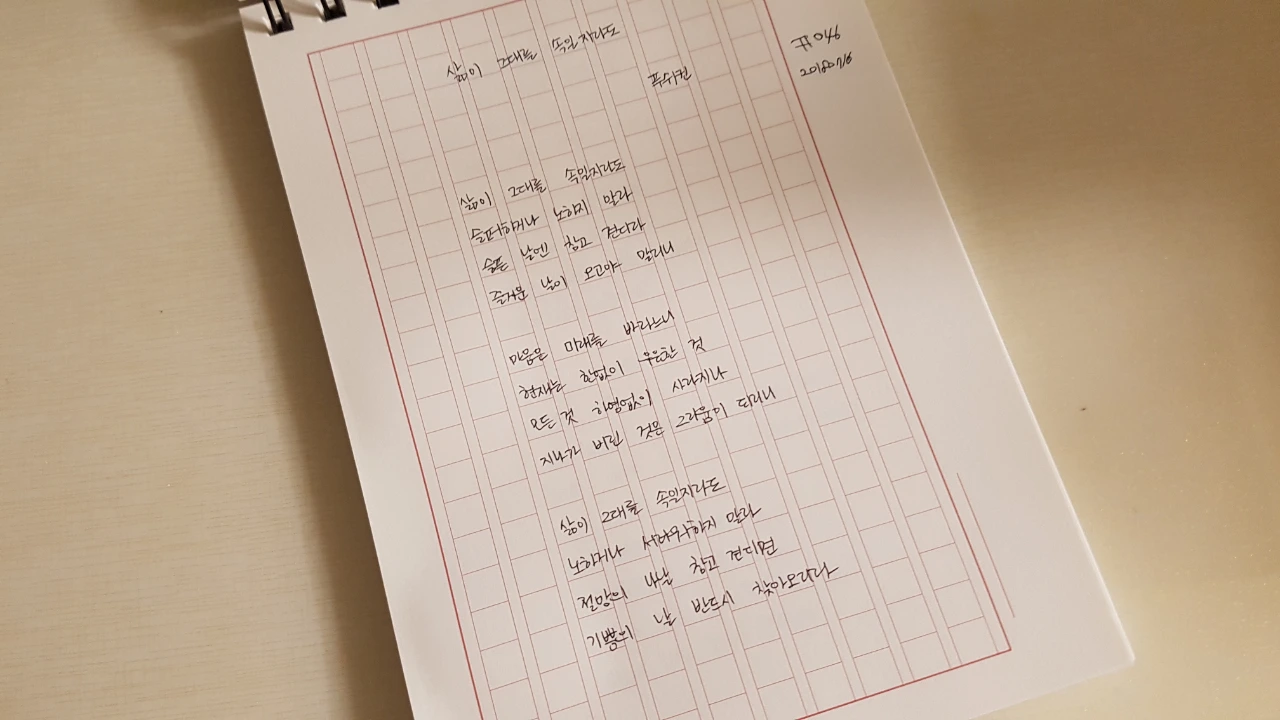 삶이 그대를 속일지라도
푸쉬킨
#046
20180716
삶이 그대를 속일지라도
슬퍼하거나 노하지 말라
슬픈 날엔 참고 견디라
즐거운 날이 오고야 말리니
마음은 미래를 바라느니
현재는 한없이 우울한 것
모든 것 하염없이 사라지나
지나가 버린 것은 그리움이 되리니
삶이 그대를 속일지라도
노하거나 서러워하지 말라
절망의 나날 참고 견디면
기쁨의 날 반드시 찾아오리라